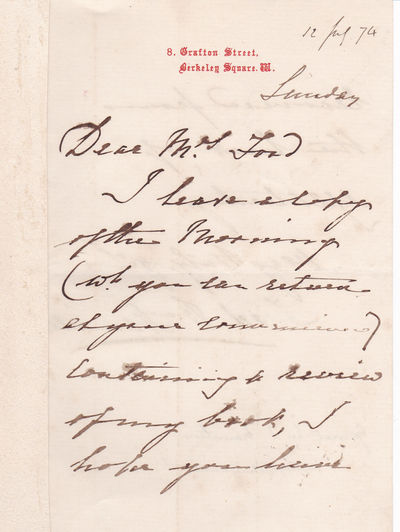 12 July 74
8. Grafton Street,
Berkeley Square. W.
Sunday
Dear Mrs Ford
I leave a copy
of the Morning
(wh. you can return
at your convenience)
containing a review
of my book, I
hope you have